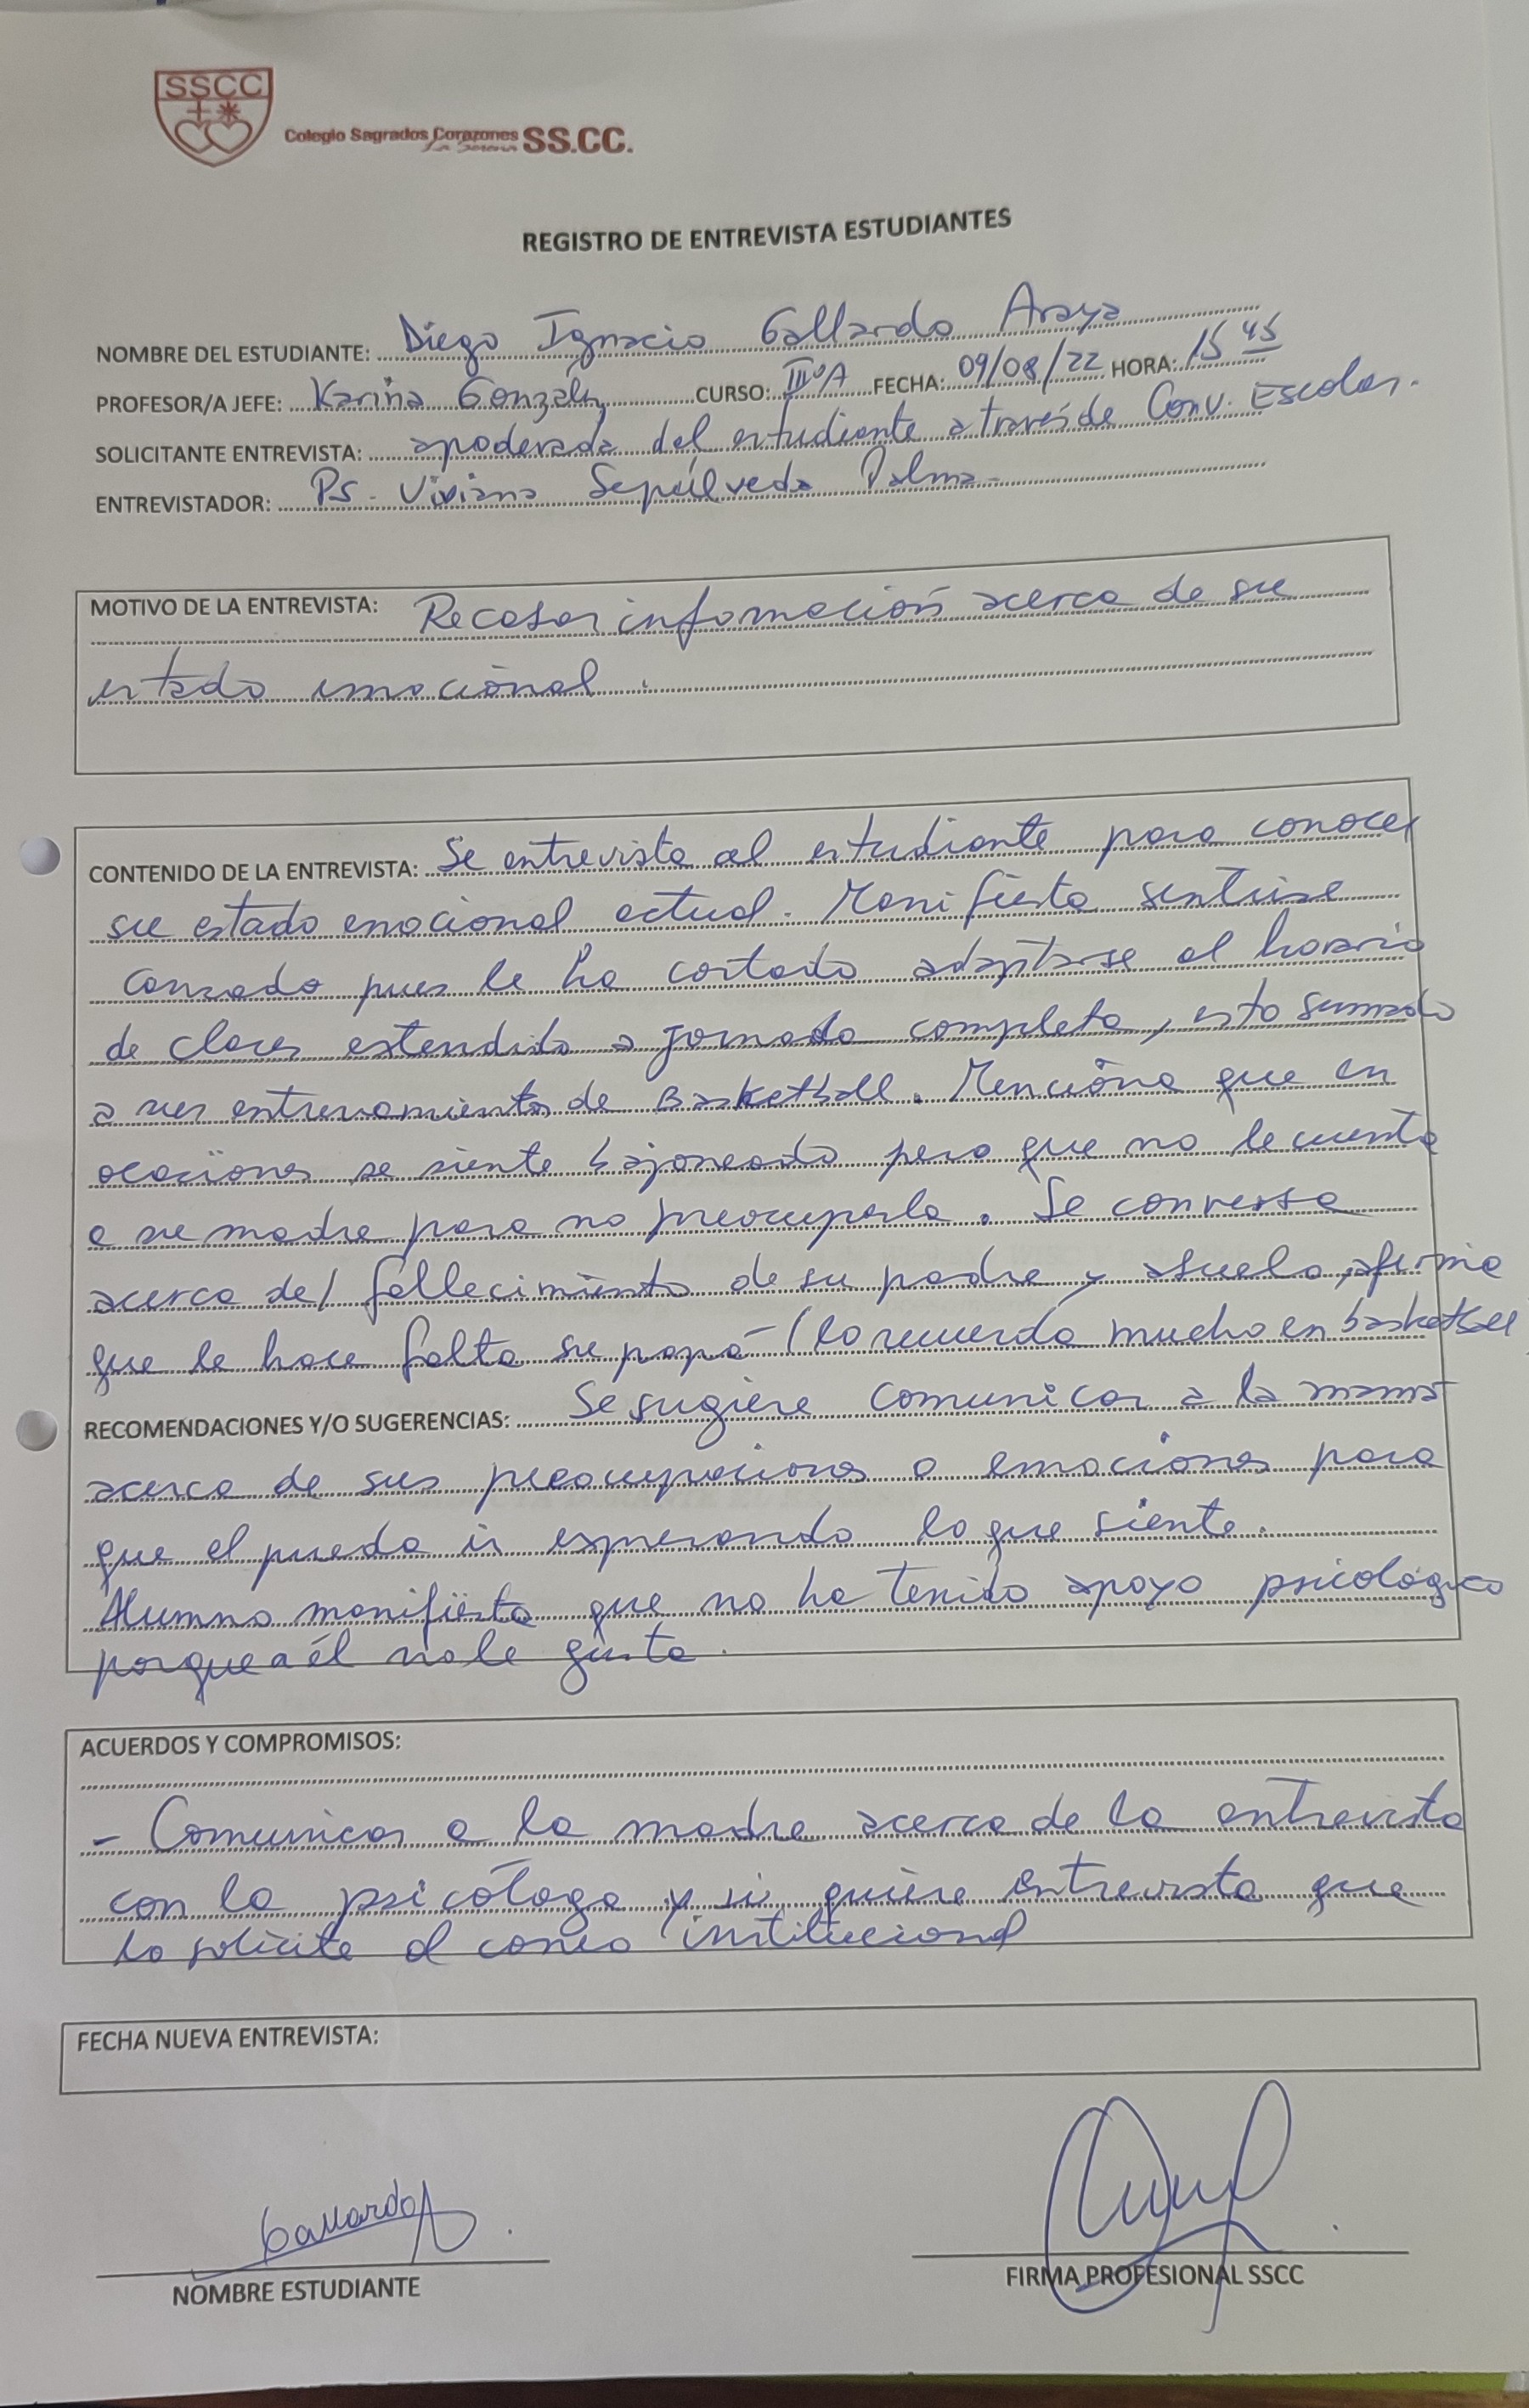 SSCC
Colegio Sagrados Corazones SS.CC.
La Serena
REGISTRO DE ENTREVISTA ESTUDIANTES
NOMBRE DEL ESTUDIANTE: Diego Ignacio Gallardo Araya
PROFESOR/A JEFE: Karina González CURSO: III°A FECHA: 09/08/22 HORA: 15 45
SOLICITANTE ENTREVISTA: apoderada del estudiante a través de Conv. Escolar.
ENTREVISTADOR: Ps. Viviana Sepúlveda Palma.
MOTIVO DE LA ENTREVISTA: Recabar información acerca de su
estado emocional.
CONTENIDO DE LA ENTREVISTA: Se entrevista al estudiante para conocer
su estado emocional actual. Manifiesta sentirse
cansado pues le ha costado adaptarse al horario
de clases extendido a jornada completa, esto sumado
a sus entrenamientos de Basketball. Menciona que en
ocaciones se siente bajoneado pero que no le cuenta
a su madre para no preocuparla. Se conversa
acerca del fallecimiento de su padre y abuelo, afirma
que le hace falta su papá (lo recuerda mucho en basketball
RECOMENDACIONES Y/O SUGERENCIAS: Se sugiere comunicar a la mamá
acerca de sus preocupaciones o emociones para
que el pueda ir expresando lo que siente.
Alumno manifiesta que no ha tenido apoyo psicológico
porque a él no le gusta.
ACUERDOS Y COMPROMISOS:
- Comunicar a la madre acerca de la entrevista
con la psicóloga y si quiere entrevista que
la solicite al correo institucional
FECHA NUEVA ENTREVISTA:
Gallardo A.
NOMBRE ESTUDIANTE
FIRMA PROFESIONAL SSCC